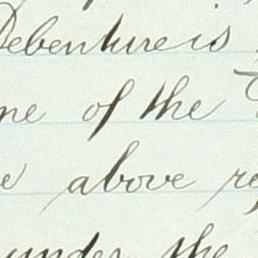 Debenture is
of the
above
under the